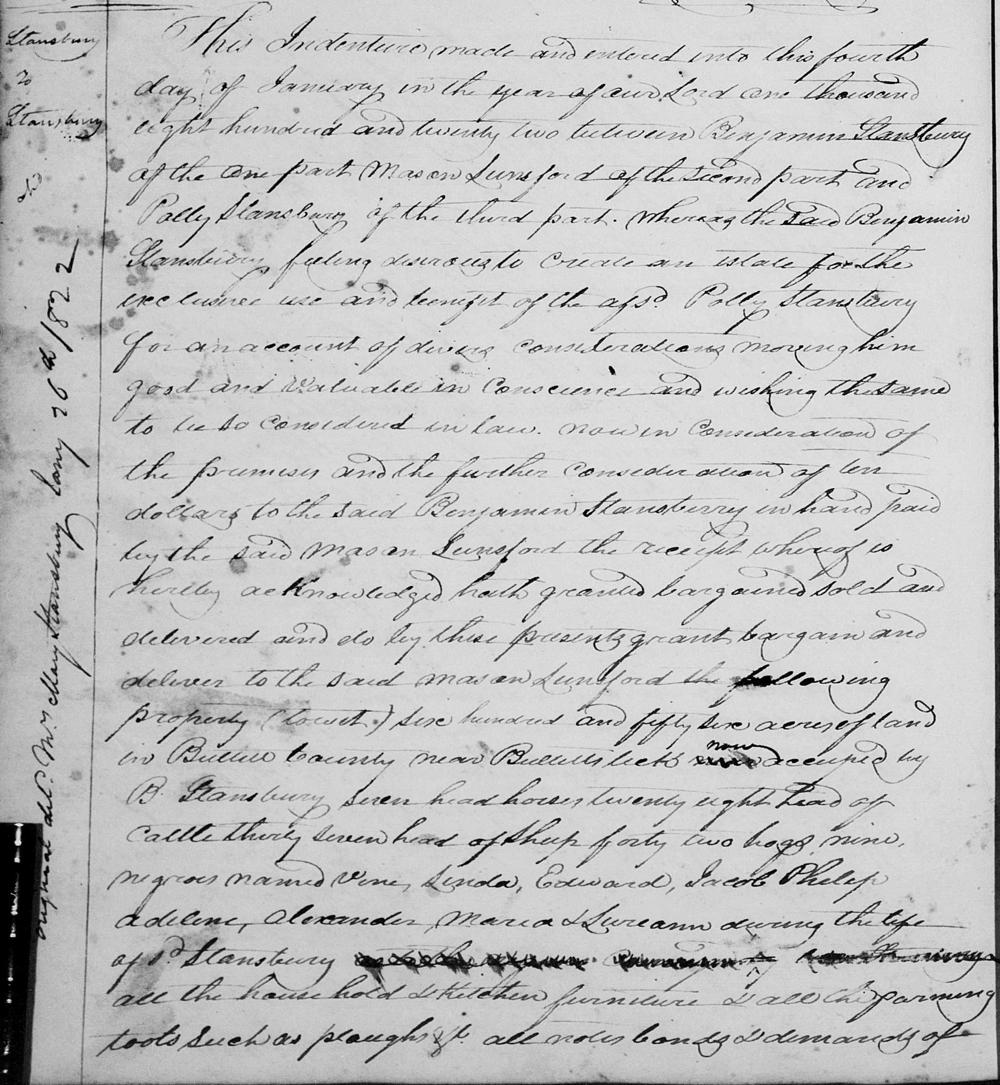 Stansbury
to
Stansbury
original deld. Mrs Mary Stansbury Jany 26th 1822
This Indenture made and entered into this fourth
day of January in the year of our Lord one thousand
eight hundred and twenty two between Benjamin Stansbury
of the one part Mason Lunsford of the second part and
Polly Stansbury of the third part. Whereas the said Benjamin
Stansbury feeling desirous to create an estate for the
exclusive use and benefit of the afsd. Polly Stansbury
for an account of divers considerations moving him
good and valuable in Conscience and wishing the same
to be so considered in law. now in Consideration of
the premises and the further consideration of ten
dollars to the said Benjamin Stansberry in hand paid
by the said Mason Lunsford the receipt whereof is
hereby acknowledged hath granted bargained sold and
delivered and do by these presents grant, bargain and
deliver to the said Mason Lunsford the following
property (towit.) six hundred and fifty six acres of land
in Bullitt County near Bullitts lick now accupied by
B. Stansbury seven head horses twenty eight head of
Cattle thirty seven head of sheep forty two hogs nine,
negroes named Vine, Linda, Edward, Jacob Philip
Adeline, Alexander, Maria & Lureann during the life
of sd. Stansbury
all the household & Kitchen furniture & all the farming
tools such as ploughs &c. all notes bonds & demands of